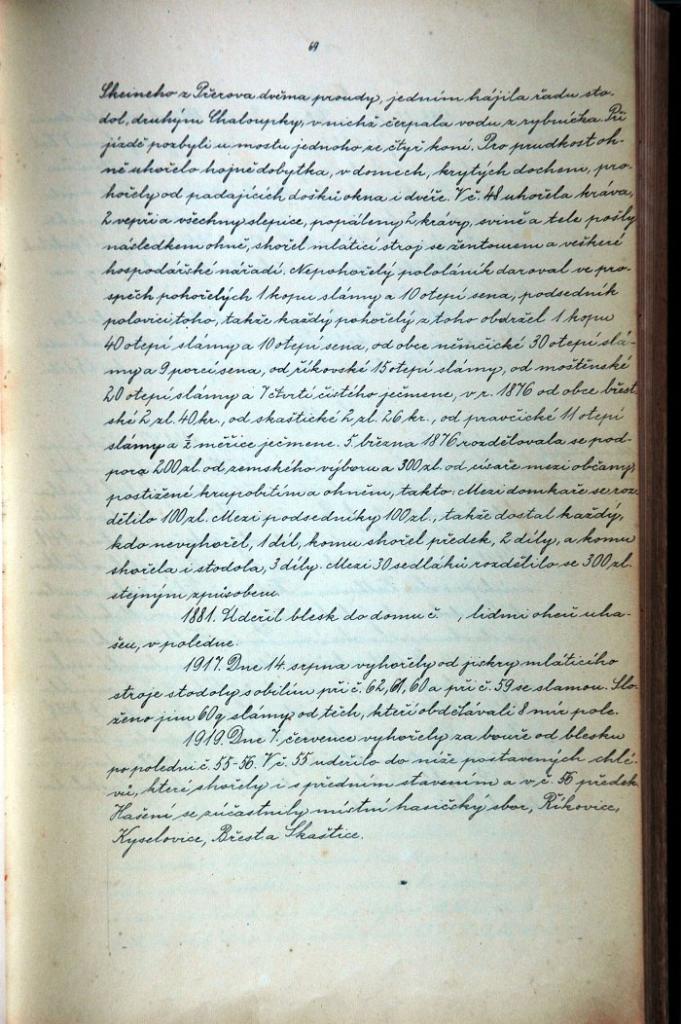 69
Skeineho z Přerova dvěma proudy, jedním hájila řadu sto-
dol, druhým Chaloupky, v nichž čerpala vodu z rybníčka. Při
jízdě pozbyli u mostu jednoho ze čtyř koní. Pro prudkost oh-
ně uhořelo hojně dobytka, v domech, krytých dochem, pro-
hořely od padajících došků okna i dvéře. V č. 48 uhořela kráva,
2 vepři a všechny slepice, popáleny 2 krávy, svině a tele pošly
následkem ohně, shořel mláticí stroj se žentourem a veškeré
hospodářské nářadí. Nepohořelý pololáník daroval ve pro-
spěch pohořelých 1 kopu slámy a 10 otepí sena, podsedník
polovici toho, takže každý pohořelý z toho obdržel 1 kopu
40 otepí slámy a 10 otepí sena, od obce němčické 30 otepí slá-
my a 9 porcí sena, od říkovské 15 otepí slámy, od moštěnské
20 otepí slámy a 7 čtvrtí čistého ječmene, v r. 1876 od obce břest-
ské 2 zl. 40 kr., od skaštické 2 zl. 26 kr., od pravčické 11 otepí
slámy a ½ měřice ječmene. 5. března 1876 rozdělovala se pod-
pora 200 zl. od zemského výboru a 300 zl. od císaře mezi občany,
postižené krupobitím a ohněm, takto: Mezi domkaře se roz-
dělilo 100 zl. Mezi podsedníky 100 zl., takže dostal každý,
kdo nevyhořel, 1 díl, komu shořel předek, 2 díly, a komu
shořela i stodola, 3 díly. Mezi 30 sedláků rozdělilo se 300 zl.
stejným způsobem.
1881. Udeřil blesk do domu č. , lidmi oheň uha-
šen, v poledne.
1917. Dne 14. srpna vyhořely od jiskry mláticího
stroje stodoly s obilím při č. 62, 61, 60 a při č. 59 se slamou. Slo-
ženo jim 60 q slámy od těch, kteří obdělávali 8 mír pole.
1919. Dne 7. července vyhořely za bouře od blesku
po poledni č. 55-56. V č. 55 udeřilo do níže postavených chlé-
vů, které shořely i s předním stavením a v č. 56 předek.
Hašení se zúčastnily místní hasičský sbor, Říkovice,
Kyselovice, Břest a Skaštice.